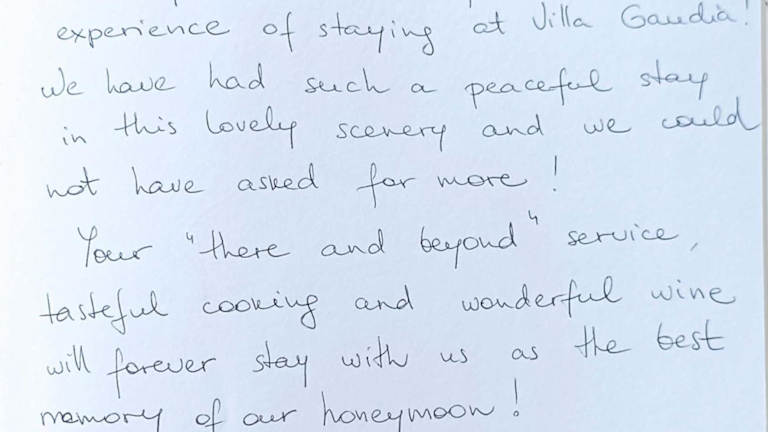 experience of staying at Villa Gaudià!
We have had such a peaceful stay
in this lovely scenery and we could
not have asked for more!
Your "there and beyond" service,
tasteful cooking and wonderful wine
will forever stay with us as the best
memory of our honeymoon!